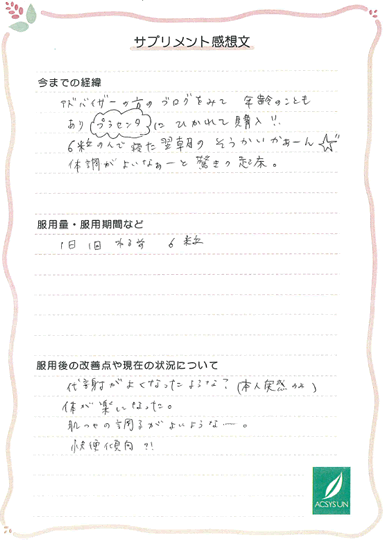 サプリメント感想文
今までの経緯
アドバイザーの方のブログをみて 年齢のことも
あり プラセンタ に ひかれて購入!!
6粒のんで 寝た翌朝の そうかいかぁーん☆
体調がよいなぁーと 驚きの起床。
服用量・服用期間など
1日 1回 ねる前 6粒
服用後の改善点や現在の状況について
代謝がよくなったような? (本人実感のみ)
体が楽になった。
肌つやの調子がよいような…。
快便傾向?!
ACSYSUN